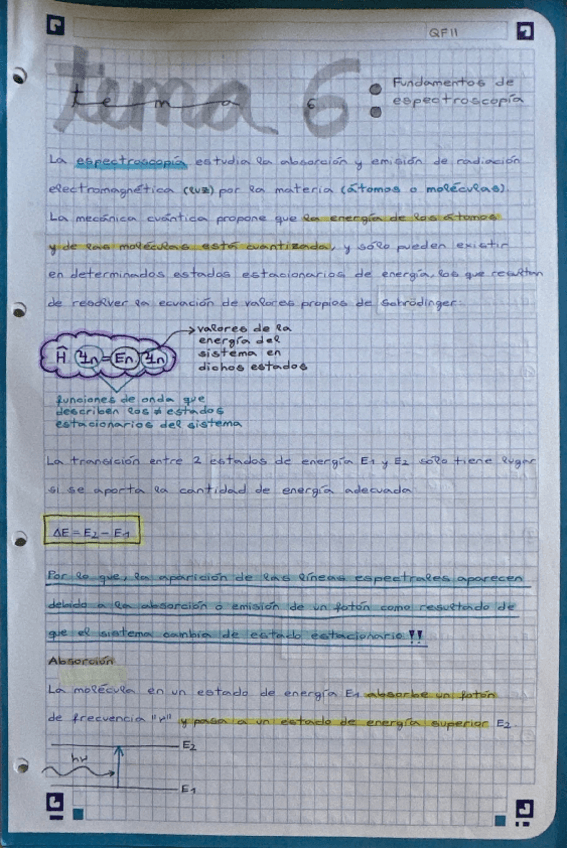 QFII
tema 6
tema 6
Fundamentos de
espectroscopía
La espectroscopía estudia la absorción y emisión de radiación
electromagnética (luz) por la materia (átomos o moléculas).
La mecánica cuántica propone que la energía de los átomos
y de las moléculas está cuantizada, y sólo pueden existir
en determinados estados estacionarios de energía, los que resultan
de resolver la ecuación de valores propios de Schrödinger:
valores de la
energía del
sistema en
dichos estados
Ĥ Ψn = En Ψn
funciones de onda que
describen los ≠ estados
estacionarios del sistema
La transición entre 2 estados de energía E1 y E2 sólo tiene lugar
si se aporta la cantidad de energía adecuada
ΔE = E2 - E1
Por lo que, la aparición de las líneas espectrales aparecen
debido a la absorción o emisión de un fotón como resultado de
que el sistema cambia de estado estacionario!!
Absorción
La molécula en un estado de energía E1 absorbe un fotón
de frecuencia "ν" y pasa a un estado de energía superior E2.
E2
hν
E1